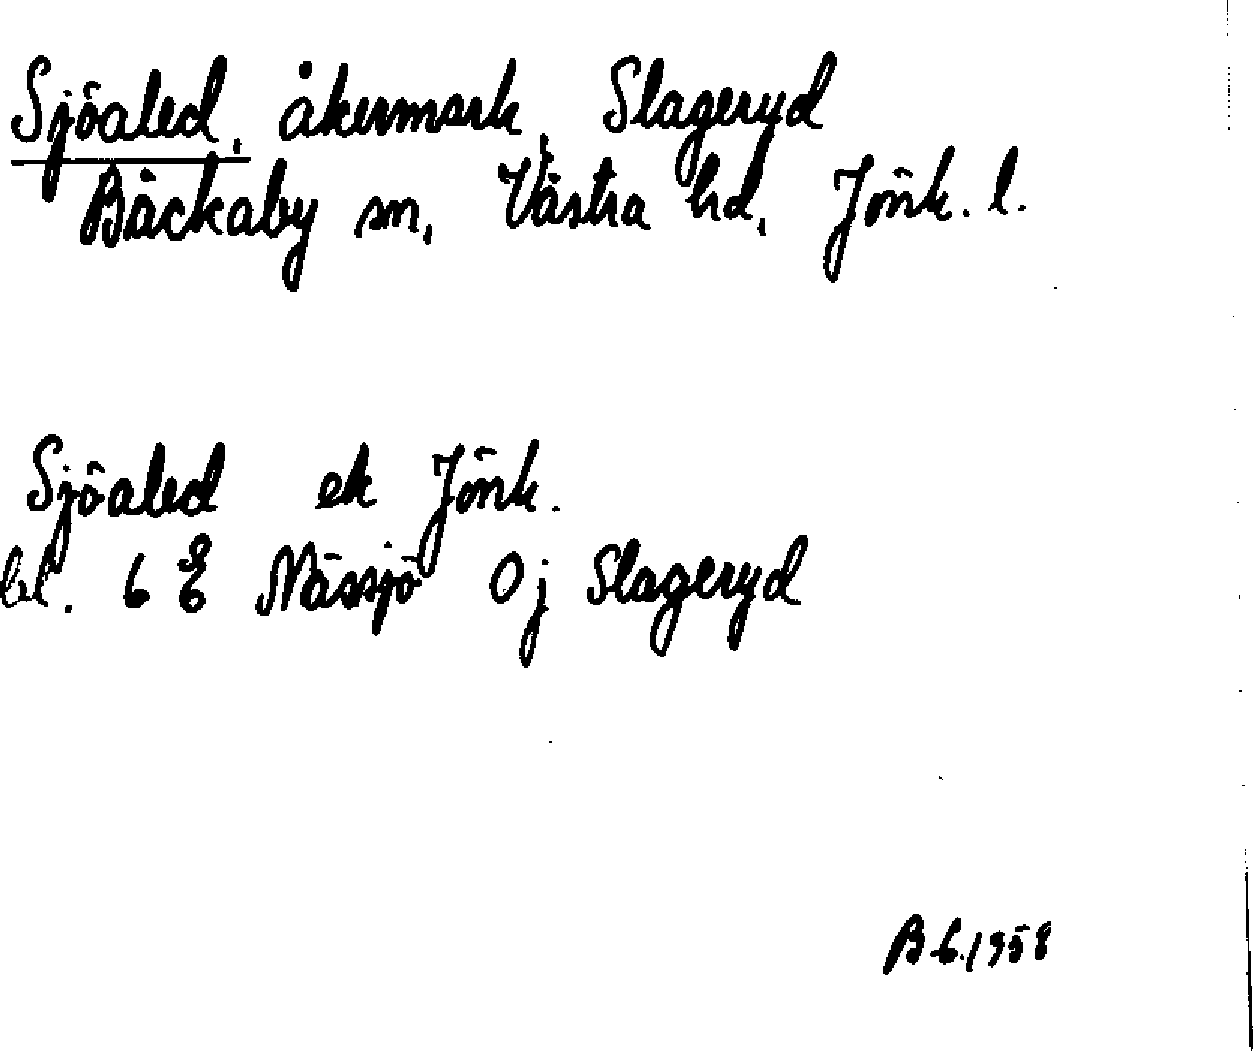 Sjöaled, åkermark, Slageryd
Bäckaby sn, Västra hd, Jönk. l.
Sjöaled ek Jönk.
bl. 6 E Nässjö Oj Slageryd
1958